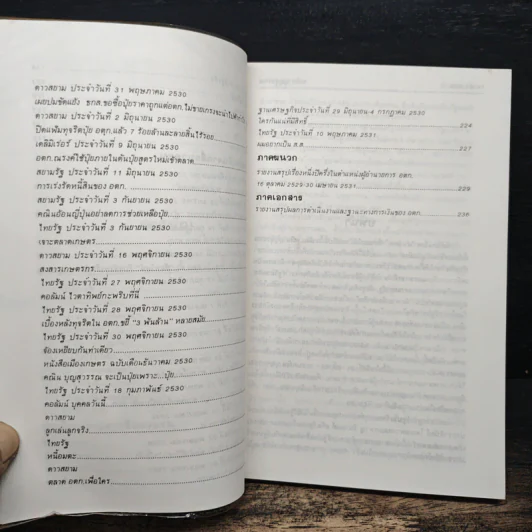 ดาวสยาม ประจำวันที่ 31 พฤษภาคม 2530
เผยปมขัดแย้ง ธกส.ขอซื้อปุ๋ยราคาถูกแต่อตก.ไม่ขายเกรงจะนำไป
ดาวสยาม ประจำวันที่ 2 มิถุนายน 2530
ปิดแฟ้มทุจริตปุ๋ย อตก.แล้ว 7 ร้อยล้านละลายสิ้นไร้รอย
เดลิมิเร่อร์ ประจำวันที่ 9 มิถุนายน 2530
อตก.ณรงค์ใช้ปุ๋ยภายในค้นปุ๋ยสูตรใหม่เข้าตลาด
สยามรัฐ ประจำวันที่ 11 มิถุนายน 2530
การเร่งรัดหนี้สินของ อตก.
สยามรัฐ ประจำวันที่ 3 กันยายน 2530
คณินย้อนญี่ปุ่นอย่าลดการช่วยเหลือปุ๋ย
ไทยรัฐ ประจำวันที่ 3 กันยายน 2530
เจาะตลาดเกษตร
ดาวสยาม ประจำวันที่ 16 พฤศจิกายน 2530
สงสารเกษตรกร
ไทยรัฐ ประจำวันที่ 27 พฤศจิกายน 2530
คอลัมน์ ไวตาทิพย์กะพริบที่นี่
ไทยรัฐ ประจำวันที่ 28 พฤศจิกายน 2530
เบื้องหลังทุจริตใน อตก.ขยี้ "3 พันล้าน" หลายสมัย
ไทยรัฐ ประจำวันที่ 30 พฤศจิกายน 2530
จ้องเหยียบกันท่าเดียว
หนังสือเมืองเกษตร ฉบับเดือนธันวาคม 2530
คณิน บุญสุวรรณ จะเป็นปุ๋ยเพราะ...ปุ๋ย
ไทยรัฐ ประจำวันที่ 18 กุมภาพันธ์ 2530
คอลัมน์ บุคคลวันนี้
ดาวสยาม
ลูกเล่นลูกจริง
ไทยรัฐ
หนี้อมตะ
ดาวสยาม
ตลาด อตก.เพื่อใคร
ฐานเศรษฐกิจประจำวันที่ 29 มิถุนายน-4 กรกฎาคม 2530
ใครกันแน่ที่มีสิทธิ์ 224
ไทยรัฐ ประจำวันที่ 10 พฤษภาคม 2531
ผมอยากเป็น ส.ส. 227
ภาคผนวก
รายงานสรุปเรื่องหนึ่งปีครึ่งในตำแหน่งผู้อำนวยการ อตก.
16 ตุลาคม 2529-30 เมษายน 2531 229
ภาคเอกสาร
รายงานสรุปผลการดำเนินงานและฐานะทางการเงินของ อตก. 236